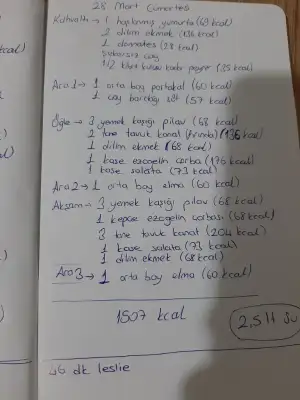 28 Mart Cumartesi
Kahvaltı → 1 haşlanmış yumurta (69 kcal)
2 dilim ekmek (136 kcal)
1 domates (28 kcal)
şekersiz çay
1/2 kibrit kutusu kadar peynir (35 kcal)
Ara 1 → 1 orta boy portakal (60 kcal)
1 çay bardağı süt (57 kcal)
Öğle → 3 yemek kaşığı pilav (68 kcal)
2 tane tavuk kanat (fırında) (136 kcal)
1 dilim ekmek (68 kcal)
1 kase ezogelin çorba (176 kcal)
1 kase salata (73 kcal)
Ara 2 → 1 orta boy elma (60 kcal)
Akşam → 3 yemek kaşığı pilav (68 kcal)
1 kepçe ezogelin çorbası (68 kcal)
3 tane tavuk kanat (204 kcal)
1 kase salata (73 kcal)
1 dilim ekmek (68 kcal)
Ara 3 → 1 orta boy elma (60 kcal)
1507 kcal
2,5 lt su
46 dk leslie